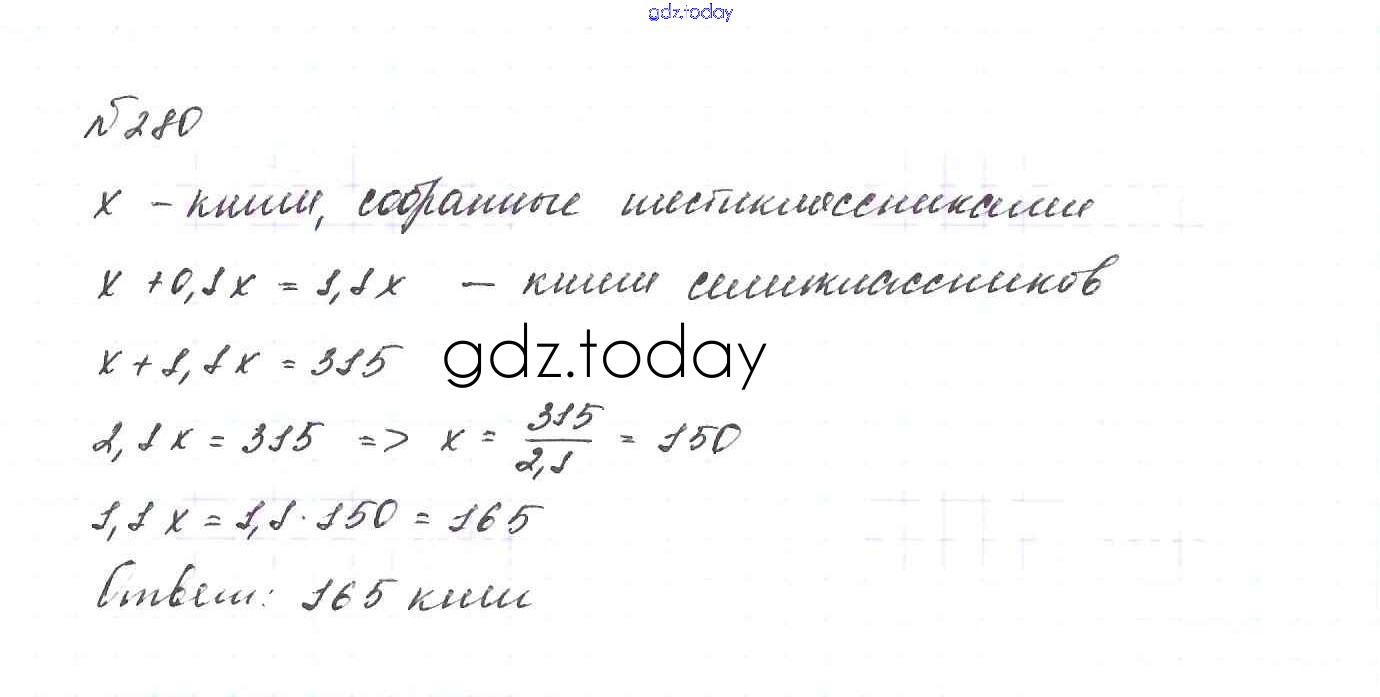 gdz.today
№280
x - книги, собранные шестиклассниками
x + 0,1x = 1,1x - книги семиклассников
x + 1,1x = 315
gdz.today
2,1x = 315 => x = 315/2,1 = 150
1,1x = 1,1 · 150 = 165
Ответ: 165 книг